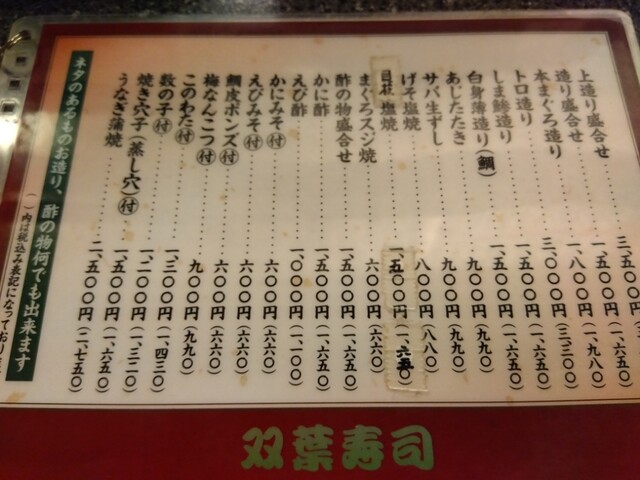 上造り盛合せ………三、五〇
造り盛合せ………一、五〇〇円(一、六五〇)
本まぐろ造り………一、八〇〇円(一、九八〇)
トロ造り………三、〇〇〇円(三、三〇〇)
しま鯵造り………一、五〇〇円(一、六五〇)
白身薄造り(鯛)………一、五〇〇円(一、六五〇)
あじたたき………九〇〇円(九九〇)
サバ生ずし………九〇〇円(九九〇)
げそ塩焼………八〇〇円(八八〇)
貝柱塩焼………一、五〇〇円(一、六五〇)
まぐろスジ焼………六〇〇円(六六〇)
酢の物盛合せ………一、五〇〇円(一、六五〇)
かに酢………一、五〇〇円(一、六五〇)
えび酢………一、〇〇〇円(一、一〇〇)
かにみそ付………六〇〇円(六六〇)
えびみそ付………六〇〇円(六六〇)
鯛皮ポンズ付………六〇〇円(六六〇)
梅なんこつ付………九〇〇円(九九〇)
このわた付………一、三〇〇円(一、四三〇)
数の子付………一、二〇〇円(一、三二〇)
焼き穴子(蒸し穴)付………一、五〇〇円(一、六五〇)
うなぎ蒲焼………二、五〇〇円(二、七五〇)
ネタのあるものお造り、酢の物何でも出来ます
( )内は税込み表記になっており
双葉寿司